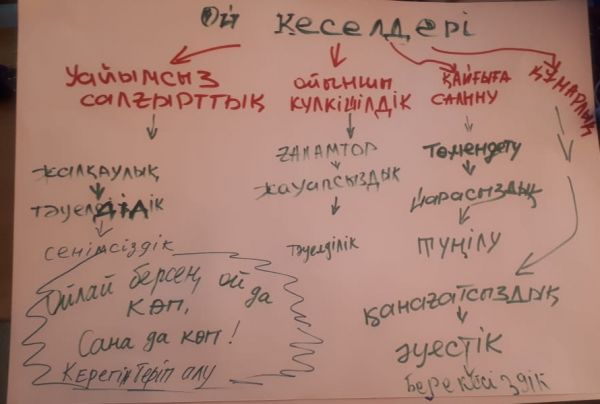 Ой кеселдері
Уайымсыз
салғырттық
ойыншы
күлкішілдік
қайғыға
салыну
құмарлық
жалқаулық
тәуелділік
сенімсіздік
ғаламтор
жауапсыздық
тәуелділік
Төмендету
Шарасыздық
түңілу
қанағатсыздық
әуестік
берекесіздік
Ойлай берсең, ой да
көп,
Сана да көп!
Керегін теріп алу